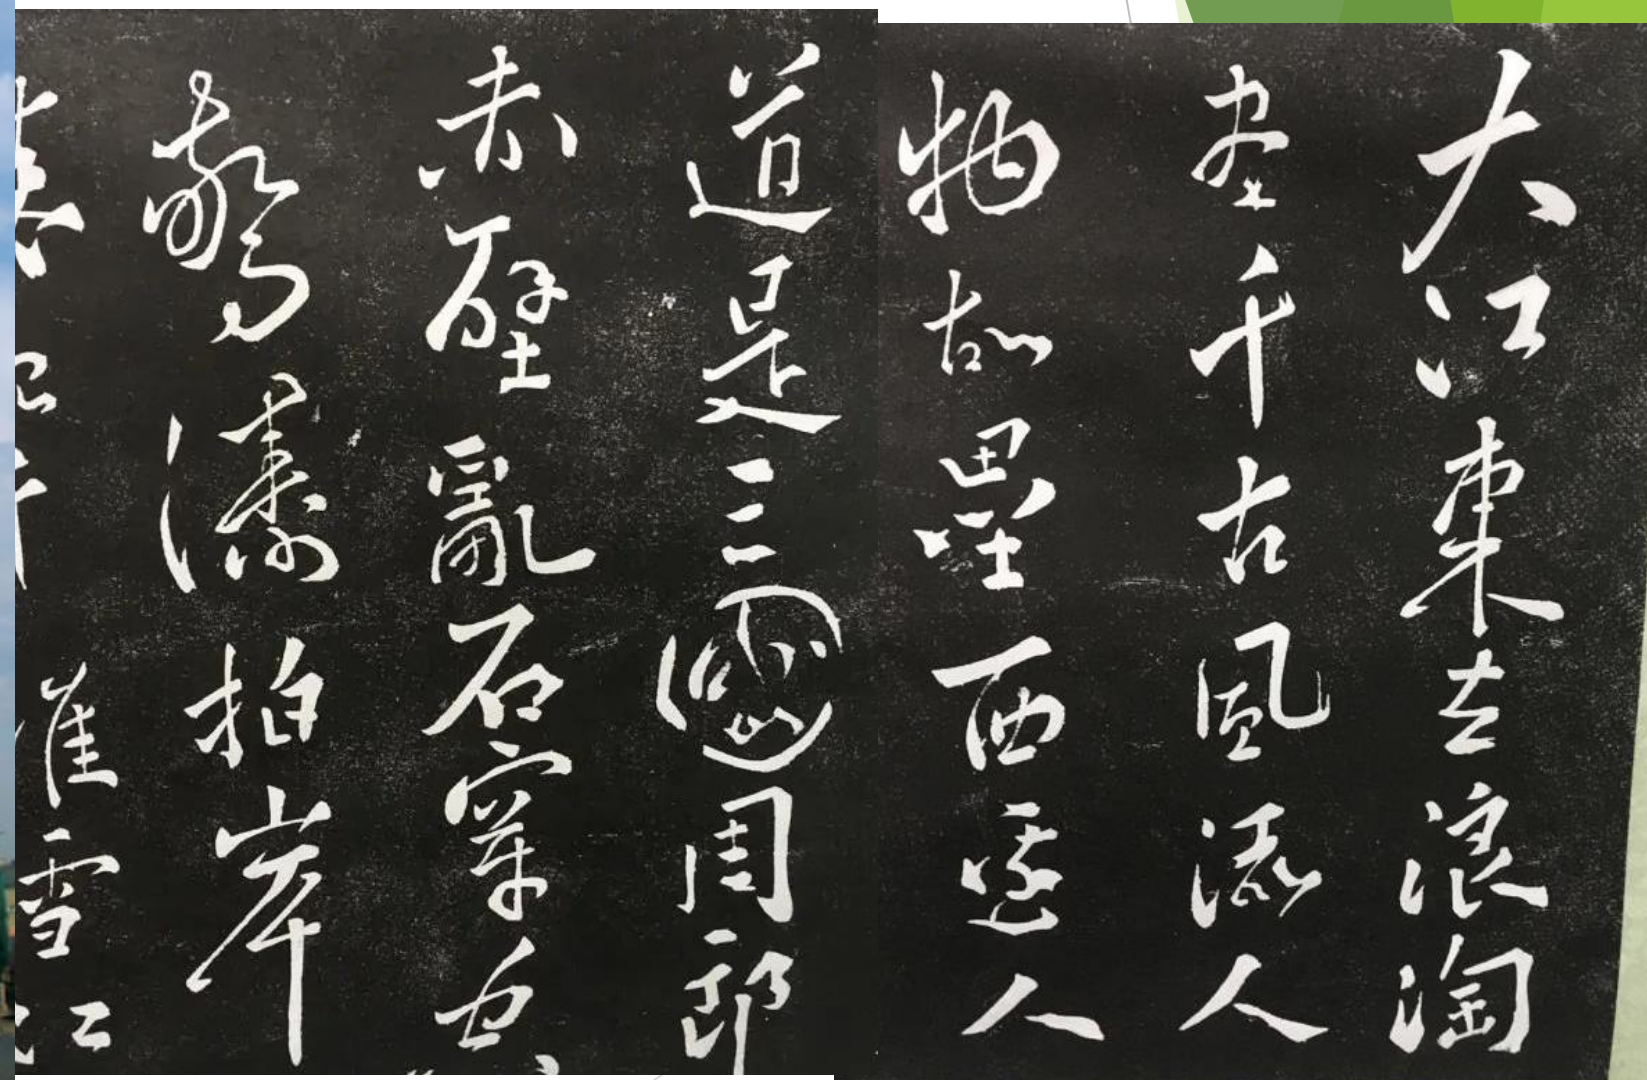 大江東去浪淘
盡千古風流人
物故壘西邊人
道是三國周郎
赤壁亂石穿空
驚濤拍岸
堆雪江